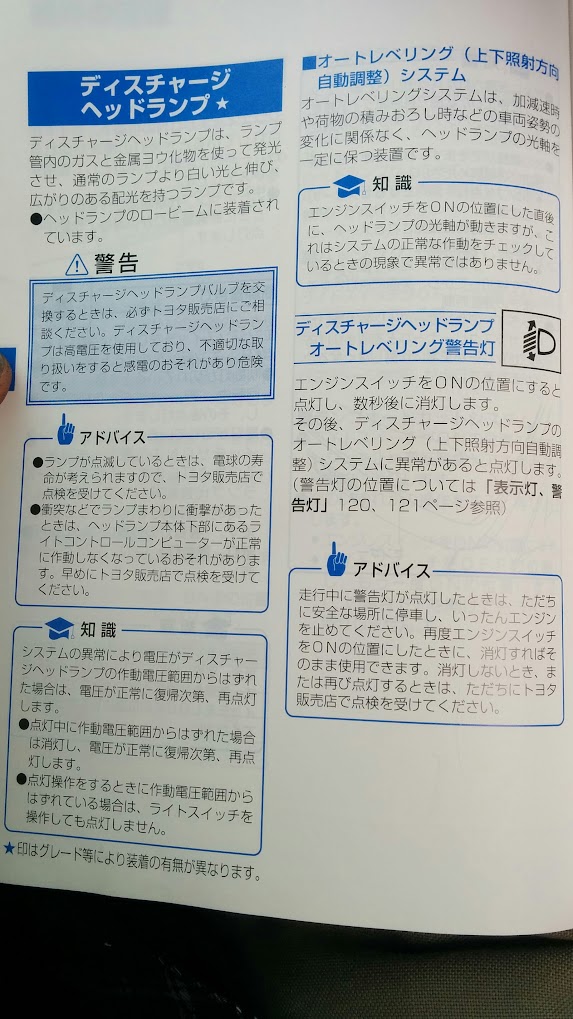 ディスチャージ
ヘッドランプ★
ディスチャージヘッドランプは、ランプ
管内のガスと金属ヨウ化物を使って発光
させ、通常のランプより白い光と伸び、
広がりのある配光を持つランプです。
●ヘッドランプのロービームに装着され
ています。
警告
ディスチャージヘッドランプバルブを交
換するときは、必ずトヨタ販売店にご相
談ください。ディスチャージヘッドラン
プは高電圧を使用しており、不適切な取
り扱いをすると感電のおそれがあり危険
です。
アドバイス
●ランプが点滅しているときは、電球の寿
命が考えられますので、トヨタ販売店で
点検を受けてください。
●衝突などでランプまわりに衝撃があった
ときは、ヘッドランプ本体下部にあるラ
イトコントロールコンピューターが正常
に作動しなくなっているおそれがありま
す。早めにトヨタ販売店で点検を受けて
ください。
知識
システムの異常により電圧がディスチャー
ジヘッドランプの作動電圧範囲からはずれ
た場合は、電圧が正常に復帰次第、再点灯
します。
●点灯中に作動電圧範囲からはずれた場合
は消灯し、電圧が正常に復帰次第、再点
灯します。
●点灯操作をするときに作動電圧範囲から
はずれている場合は、ライトスイッチを
操作しても点灯しません。
★印はグレード等により装着の有無が異なります。
■オートレベリング（上下照射方向
自動調整）システム
オートレベリングシステムは、加減速時
や荷物の積みおろし時などの車両姿勢の
変化に関係なく、ヘッドランプの光軸を
一定に保つ装置です。
知識
エンジンスイッチをONの位置にした直後
に、ヘッドランプの光軸が動きますが、こ
れはシステムの正常な作動をチェックして
いるときの現象で異常ではありません。
ディスチャージヘッドランプ
オートレベリング警告灯
エンジンスイッチをONの位置にすると
点灯し、数秒後に消灯します。
その後、ディスチャージヘッドランプの
オートレベリング（上下照射方向自動調
整）システムに異常があると点灯します。
（警告灯の位置については「表示灯、警
告灯」120、121ページ参照）
アドバイス
走行中に警告灯が点灯したときは、ただち
に安全な場所に停車し、いったんエンジン
を止めてください。再度エンジンスイッチ
をONの位置にしたときに、消灯すればそ
のまま使用できます。消灯しないとき、ま
たは再び点灯するときは、ただちにトヨタ
販売店で点検を受けてください。